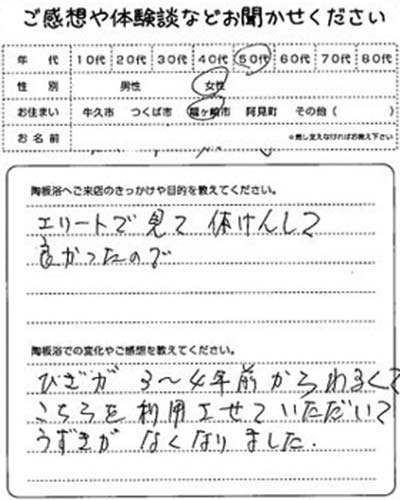 ご感想や体験談などお聞かせください
年 代 10代 20代 30代 40代 50代 60代 70代 80代
性 別 男性 女性
お住まい 牛久市 つくば市 龍ヶ崎市 阿見町 その他( )
お 名 前 ※差し支えなければお教え下さい
陶板浴へご来店のきっかけや目的を教えてください。
エリートで見て 体けんして
良かったので
陶板浴での変化やご感想を教えてください。
ひざが 3〜4年前からわるくて
こちらを利用させていただいて
うずきが なくなりました.